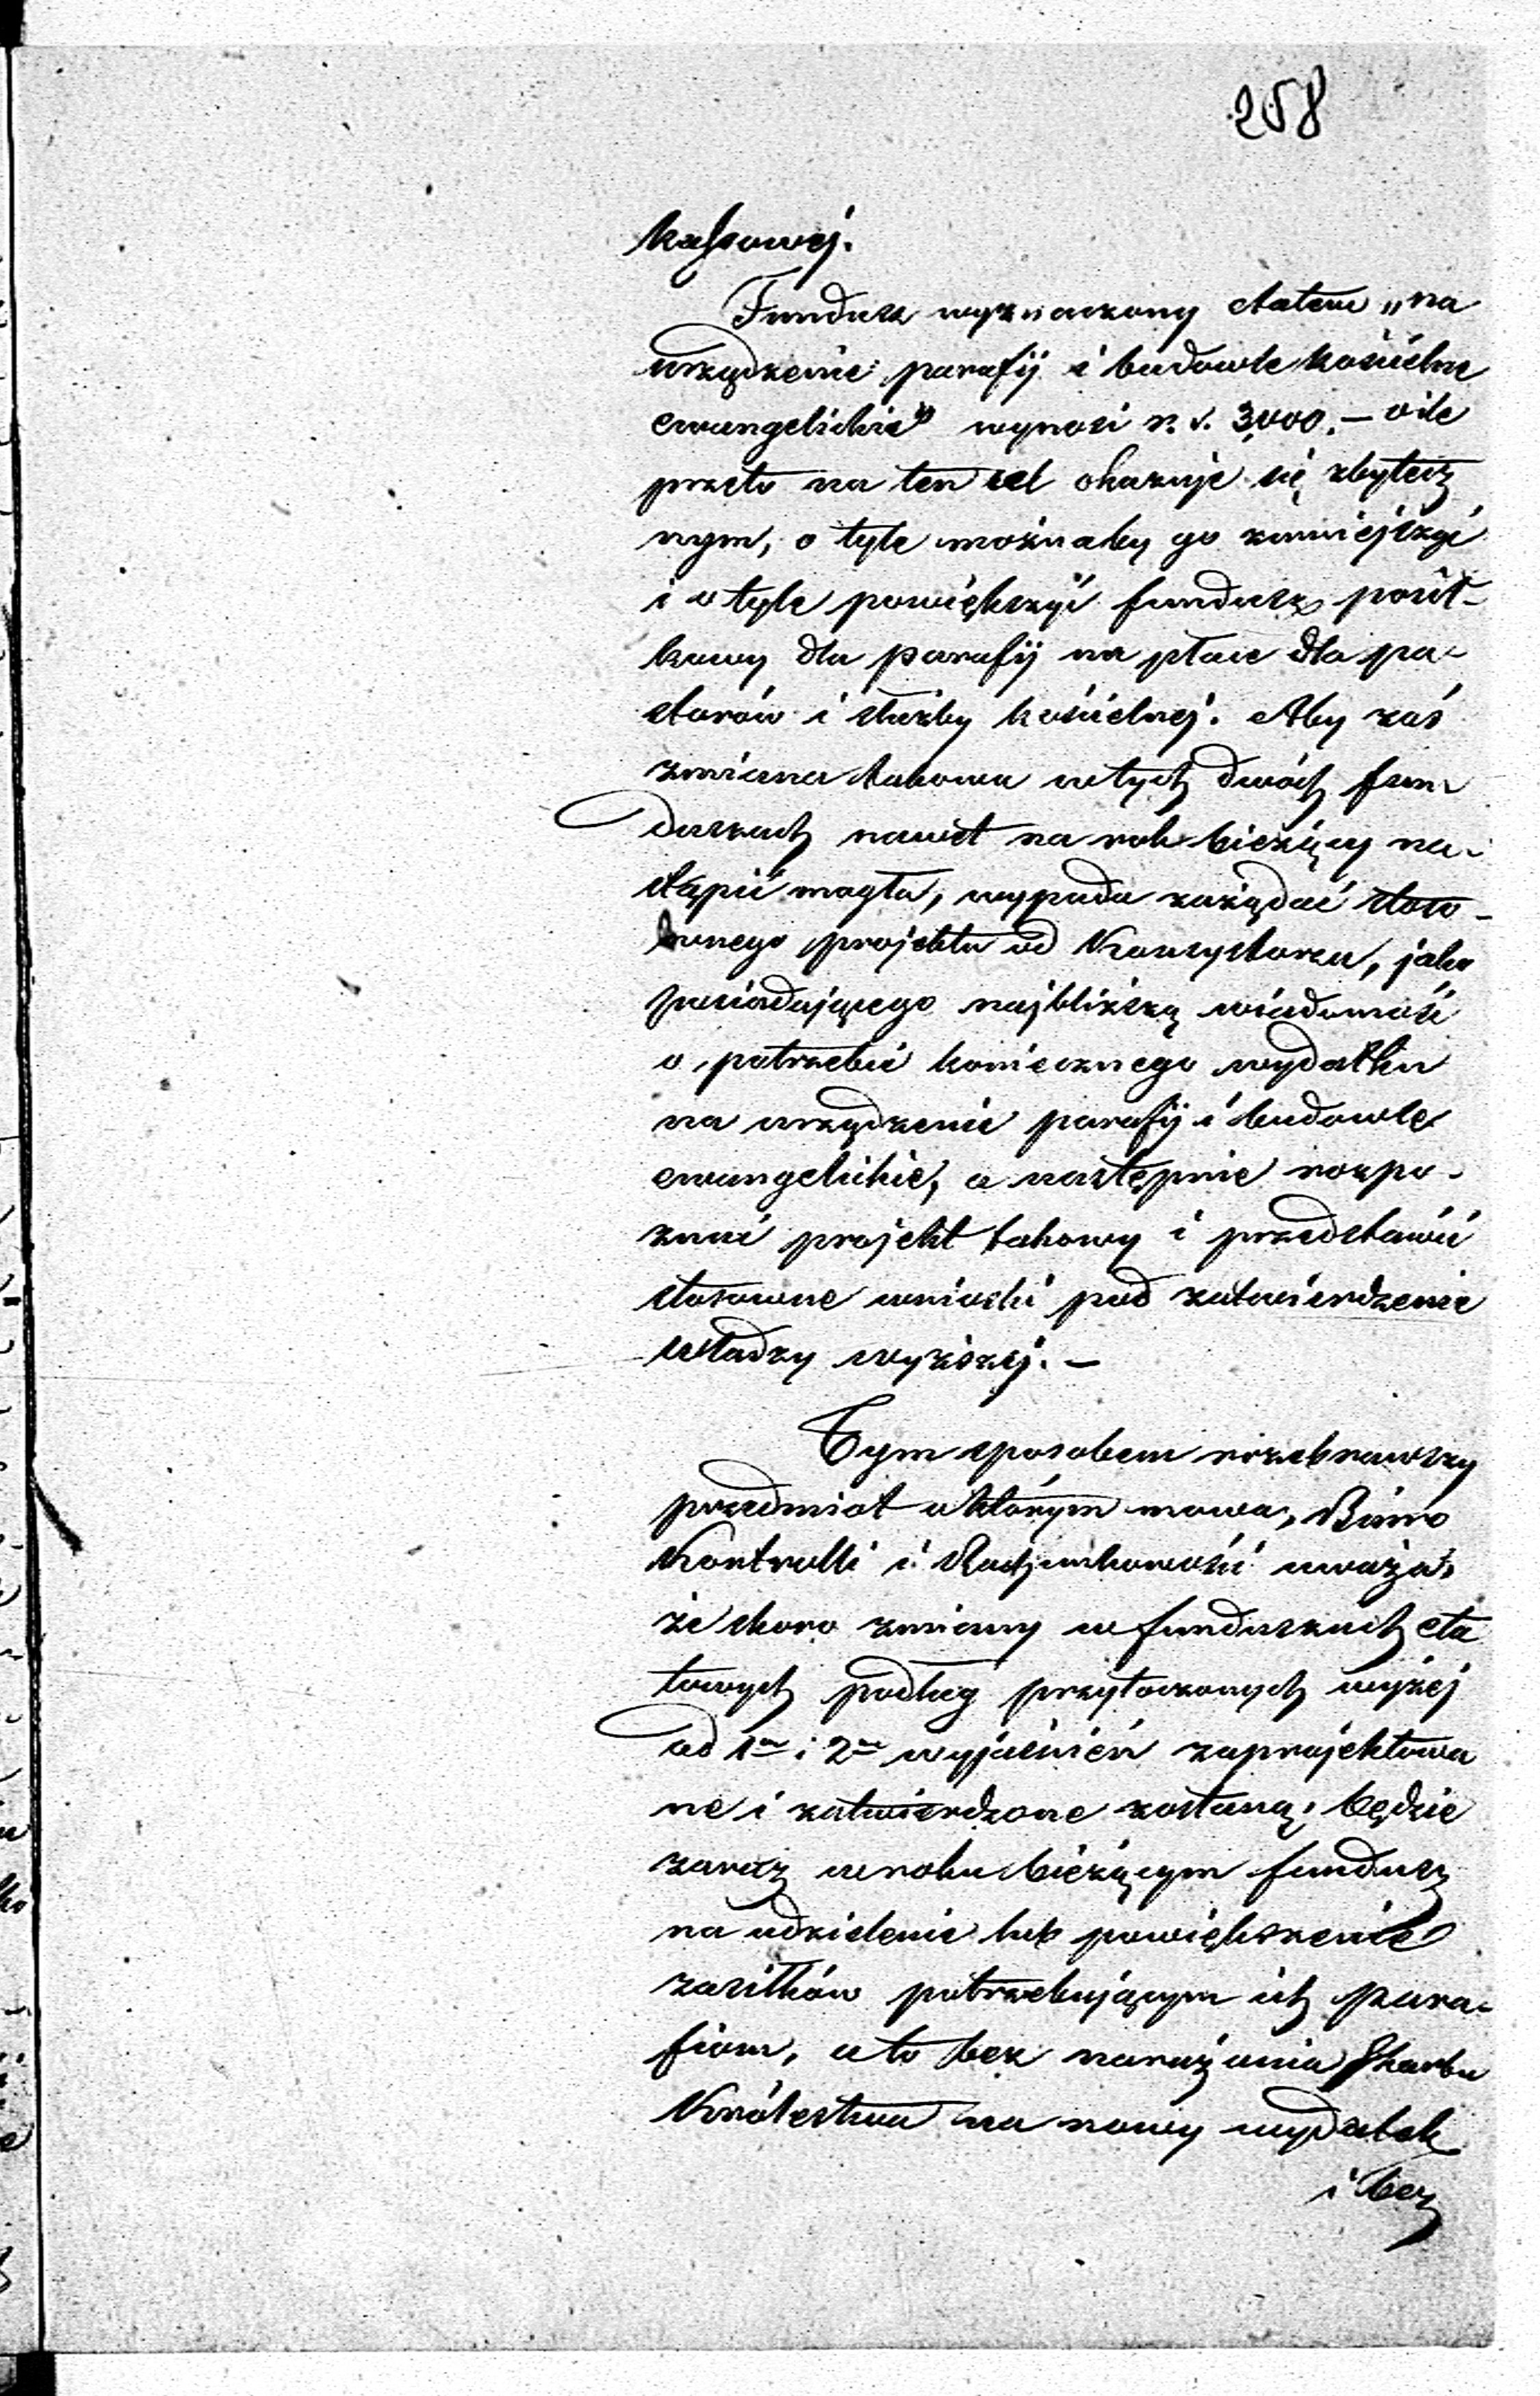 258
kassowej.
Fundusz wyznaczony etatem „na
urządzenie parafij i budowle kościelne
ewangelickie" wynosi r. s. 3,000. — o ile
przeto na ten cel okazuje się zbytecz
nym, o tyle możnaby go zmniejszyć
i o tyle powiększyć fundusz posił-
kowy dla parafij na płace dla pa-
storów i służby kościelnej. Aby zaś
zmiana takowa w tych dwóch fun
duszach nawet na rok bieżący na-
stąpić mogła, wypada zażądać stoso-
wnego projektu od Konsystorza, jako
posiadającego najbliższą wiadomość
o potrzebie koniecznego wydatku
na urządzenie parafij i budowle
ewangelickie, a następnie rozpo-
znać projekt takowy i przedstawić
stosowne wnioski pod zatwierdzenie
władzy wyższej. —
Tym sposobem rozebrawszy
przedmiot o którym mowa, Biuro
Kontrolli i Rachunkowości uważa,
że skoro zmiany w funduszach eta
towych podług przytoczonych wyżej
ad 1m i 2m wyjaśnień zaprojektowa
ne i zatwierdzone zostaną, będzie
zaraz w roku bieżącym fundusz
na udzielenie lub powiększenie
zasiłków potrzebującym ich para-
fiom, a to bez narażania Skarbu
Królestwa na nowy wydatek
i bez